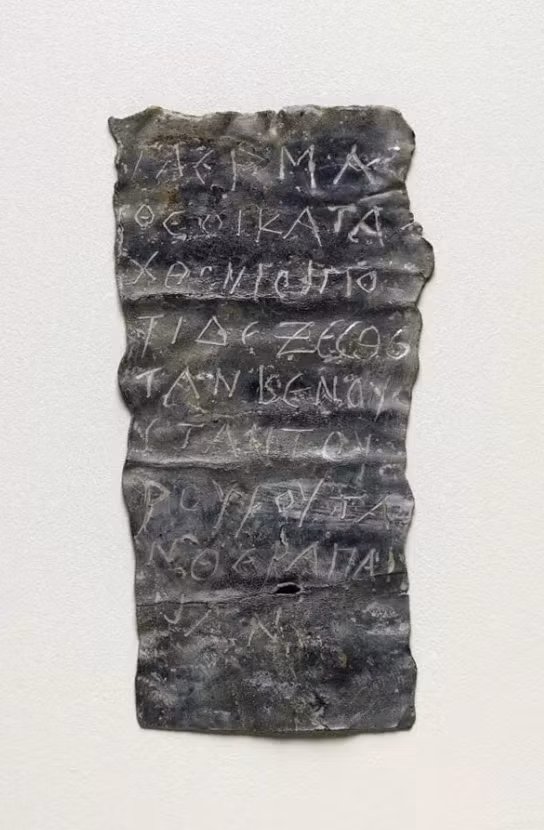 ΓΑΕΡΜΑ
ΘΕΟΙΚΑΤΑ
ΧΘΟΝΙΟΙΠΟ
ΤΙΔΕΖΕϹΘΕ
ΤΑΝΒΕΝΟΥ
ϹΤΑΝΤΟΥ
ΡΟΥΦΟΥΤΑ
ΝΘΕΡΑΠΑΙ
ΝΑΝ